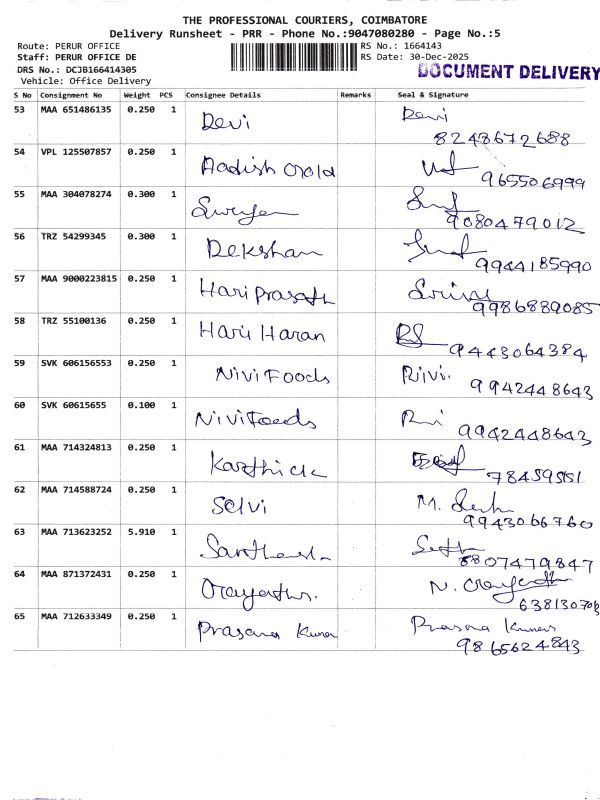 THE PROFESSIONAL COURIERS, COIMBATORE
Delivery Runsheet - PRR - Phone No.:9047080280 - Page No.:5
Route: PERUR OFFICE
Staff: PERUR OFFICE DE
DRS No.: DCJB166414305
Vehicle: Office Delivery
RS No.: 1664143
RS Date: 30-Dec-2025
DOCUMENT DELIVERY
S No Consignment No Weight PCS Consignee Details Remarks Seal & Signature
53 MAA 651486135 0.250 1 Devi Devi
8248672688
54 VPL 125507857 0.250 1 Aadish
965506999
55 MAA 304078274 0.300 1
9080479012
56 TRZ 54299345 0.300 1 Dekshan
9944185990
57 MAA 9000223815 0.250 1 Hari Prasath
9986889085
58 TRZ 55100136 0.250 1 Hari Haran
9443064384
59 SVK 606156553 0.250 1 Nivi Foods Nivi.
9942448643
60 SVK 60615655 0.100 1 Nivi Foods
9942448643
61 MAA 714324813 0.250 1 Karthick
62 MAA 714588724 0.250 1 Selvi M.
9943066760
63 MAA 713623252 5.910 1
8807479847
64 MAA 871372431 0.250 1 N.
65 MAA 712633349 0.250 1 Prasana Kumar Prasna Kumar
9865624843